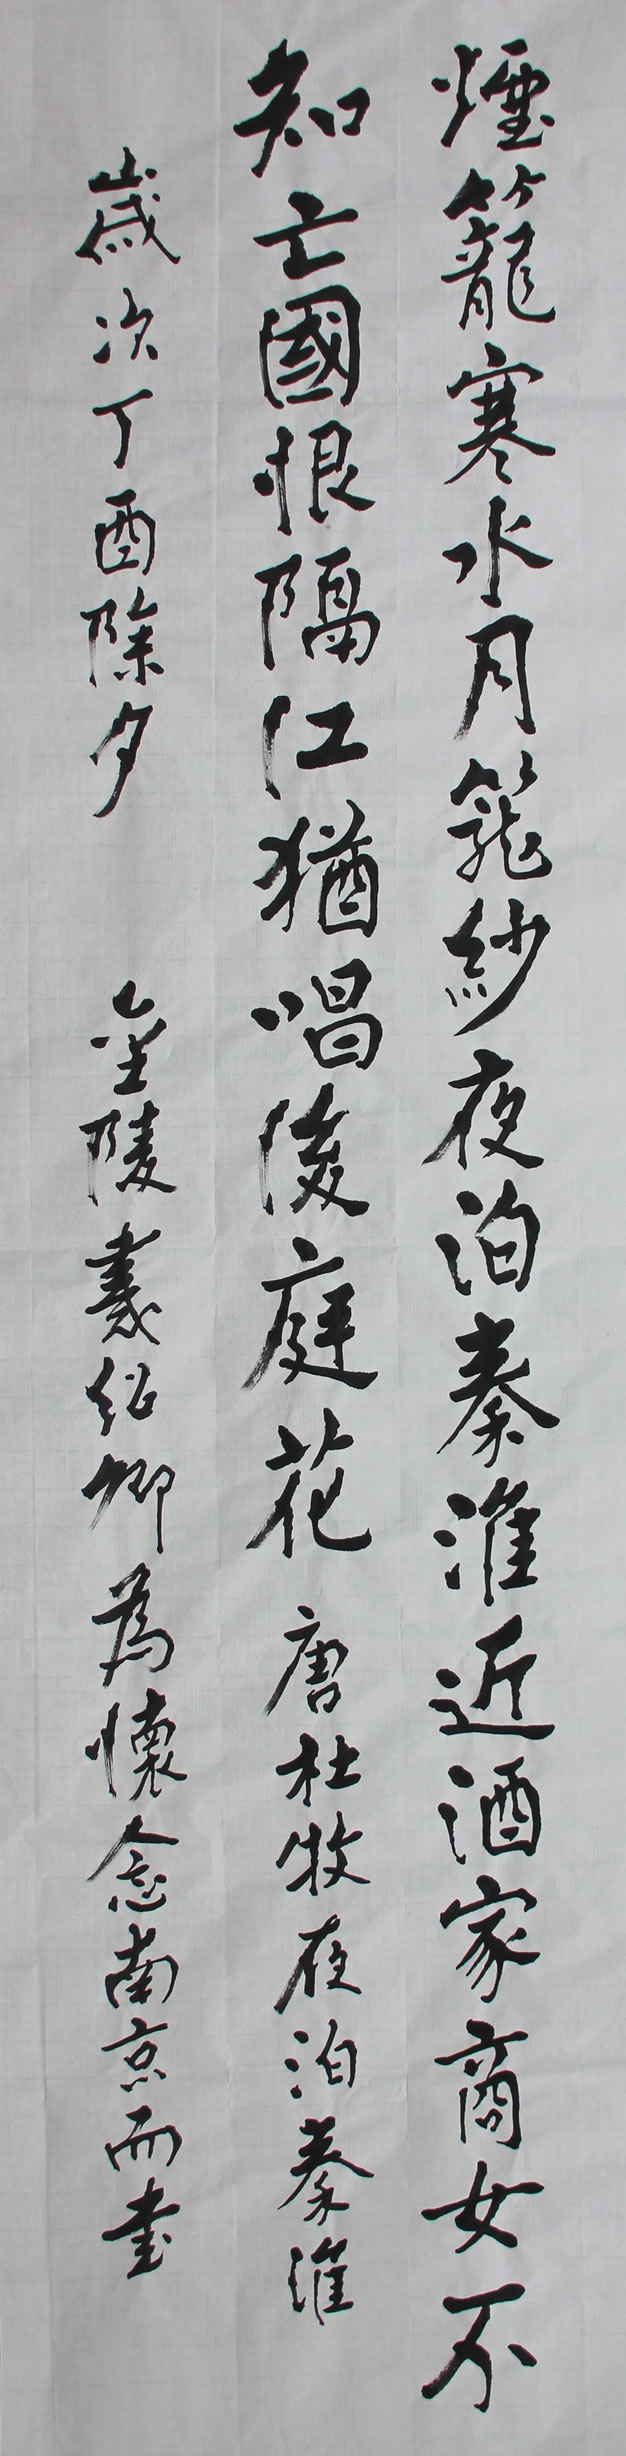 煙籠寒水月籠紗夜泊秦淮近酒家商女不
知亡國恨隔江猶唱後庭花 唐杜牧夜泊秦淮
歲次丁酉除夕 金陵義紹卿為懷念南京而書